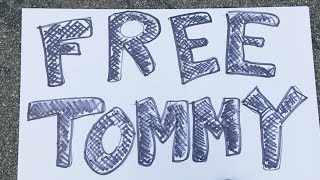 FREE
TOMMY